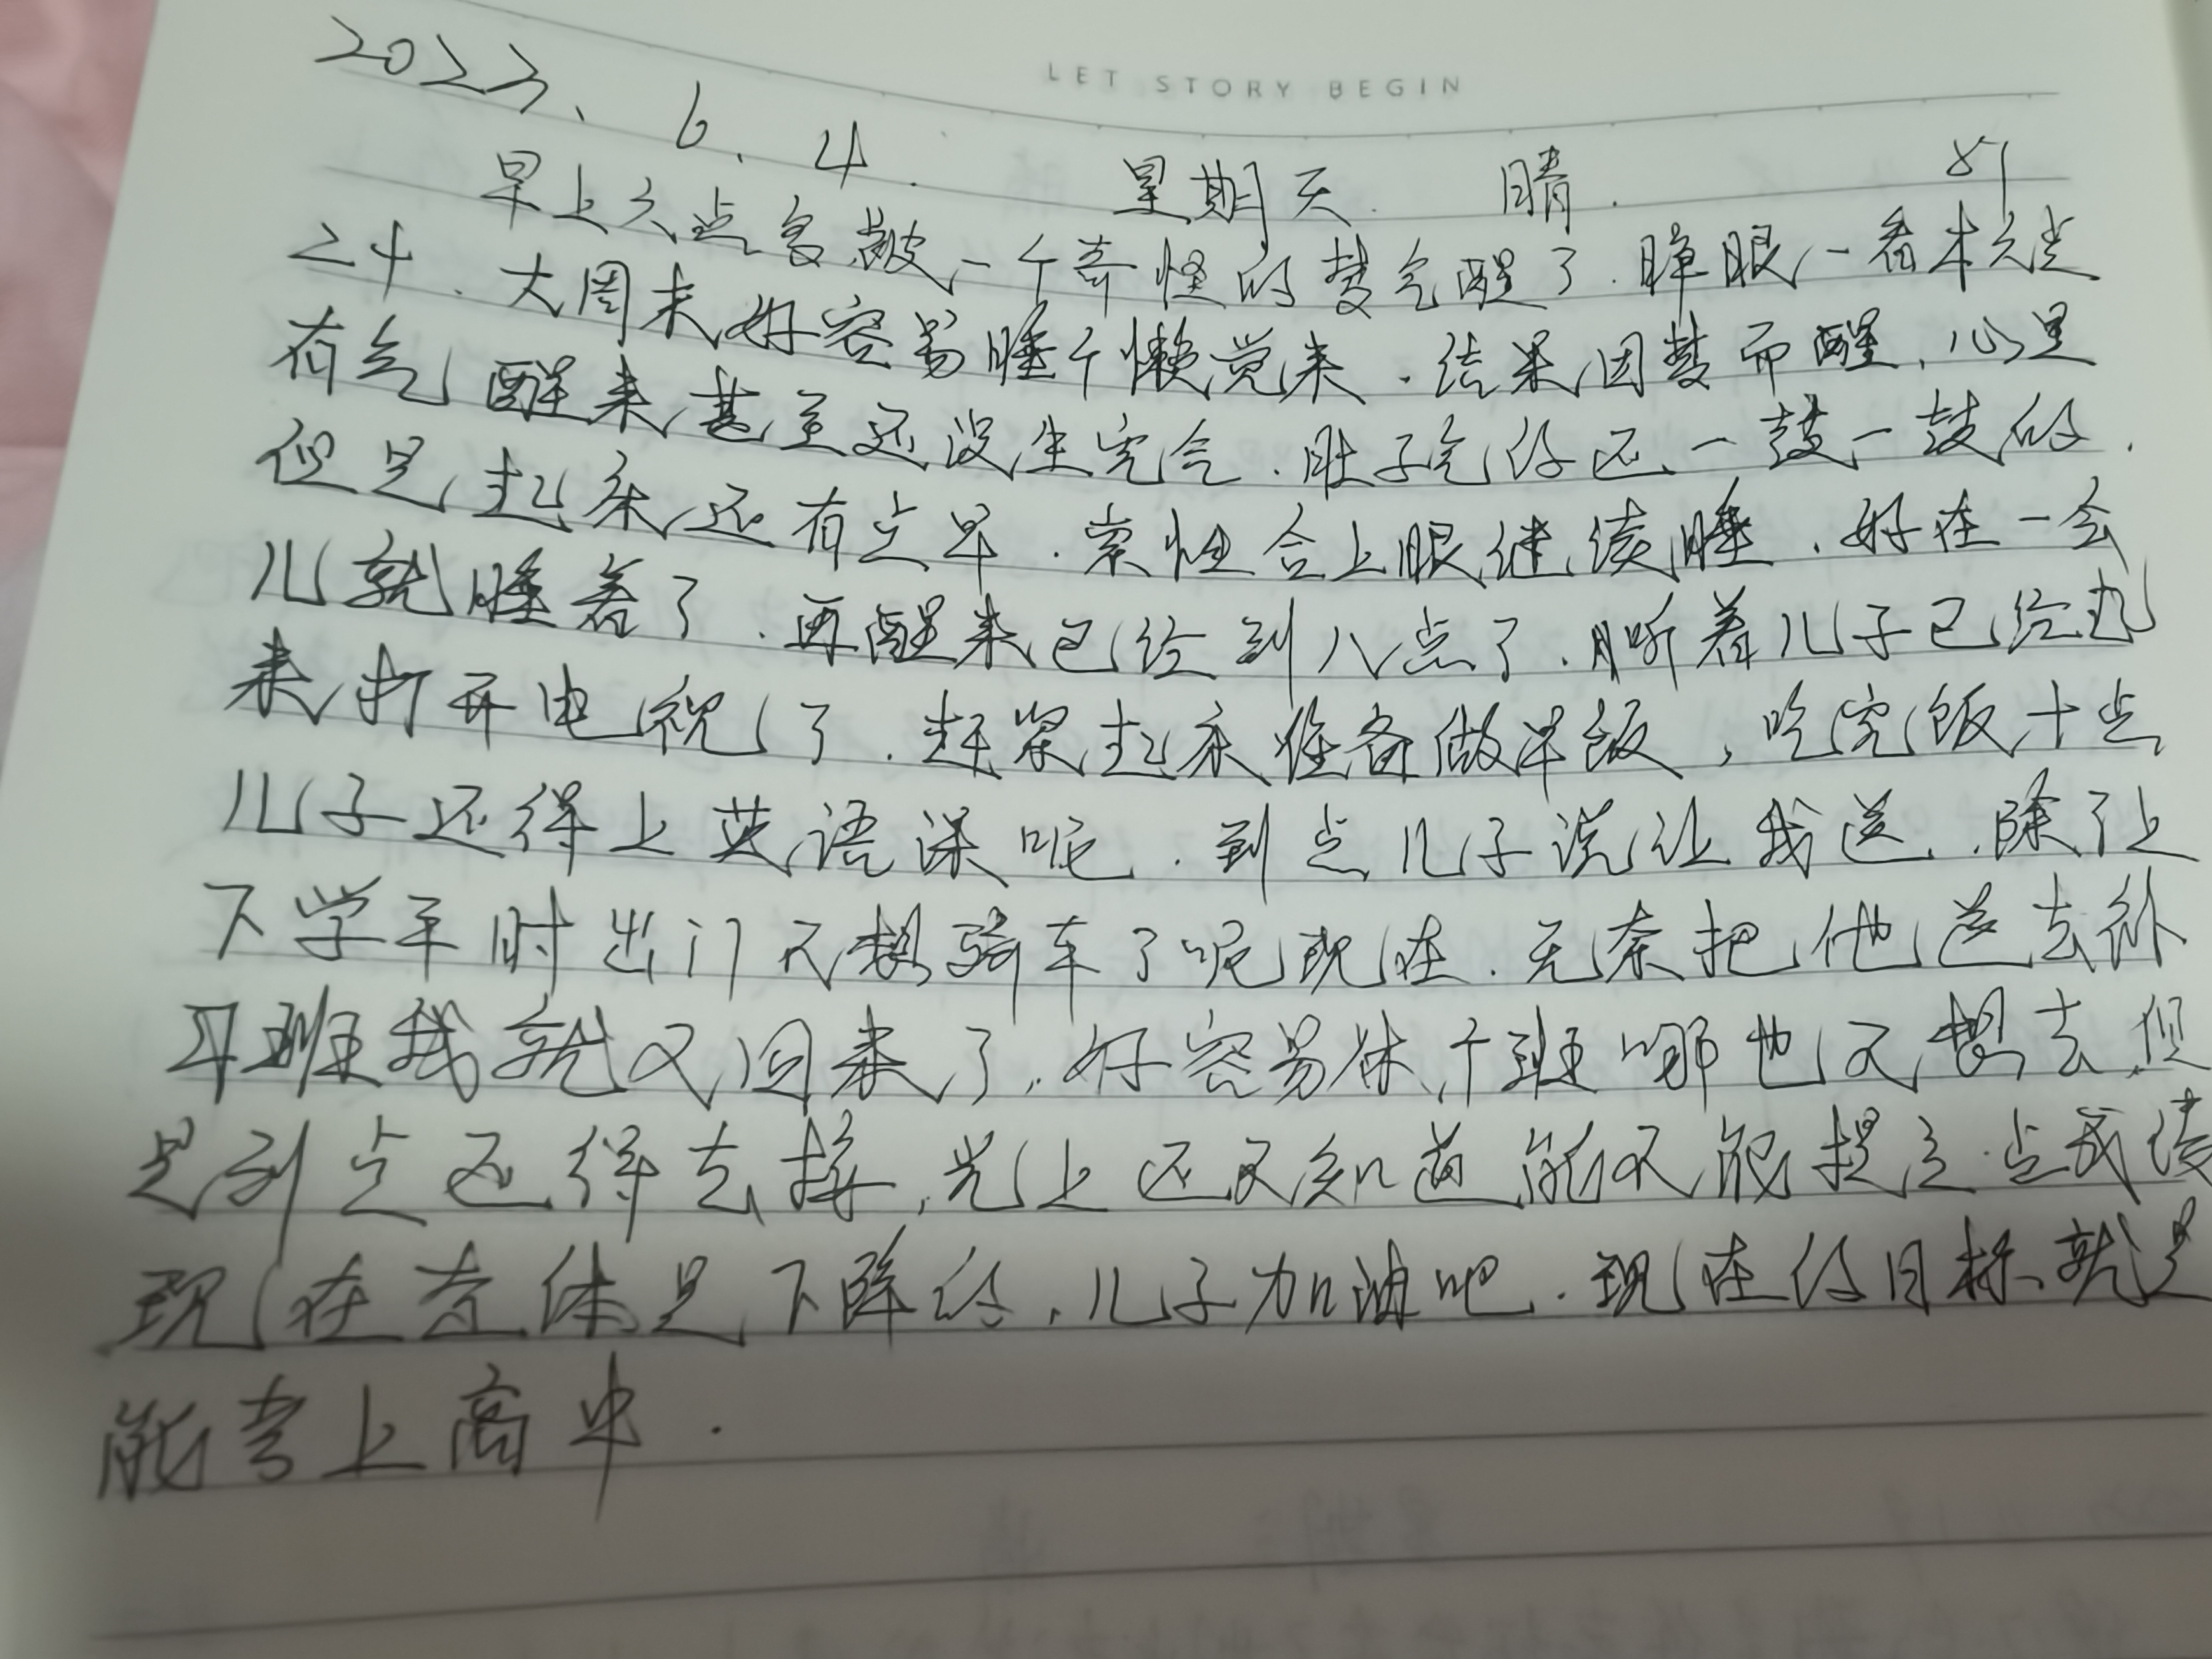 LET STORY BEGIN
2023、6、4. 星期天. 晴. 51
早上六点多被一个奇怪的梦气醒了.睁眼一看才六点
24.大周末好容易睡个懒觉来.结果因梦而醒,心里
有气,醒来甚至还没生完气.肚子气的还一鼓一鼓的.
但是起来还有点早.索性合上眼继续睡.好在一会
儿就睡着了.再醒来已经到八点了.听着儿子已经起
来打开电视了.赶紧起来准备做早饭,吃完饭十点
儿子还得上英语课呢.到点儿子说让我送.除了上
下学平时出门不想骑车了呢现在.无奈把他送去补
习班我就又回来了.好容易休个班哪也不想去,但
是到点还得去接,光上还不知道能不能提高点成绩
现在整体是下降的,儿子加油吧.现在的目标就是
能考上高中.